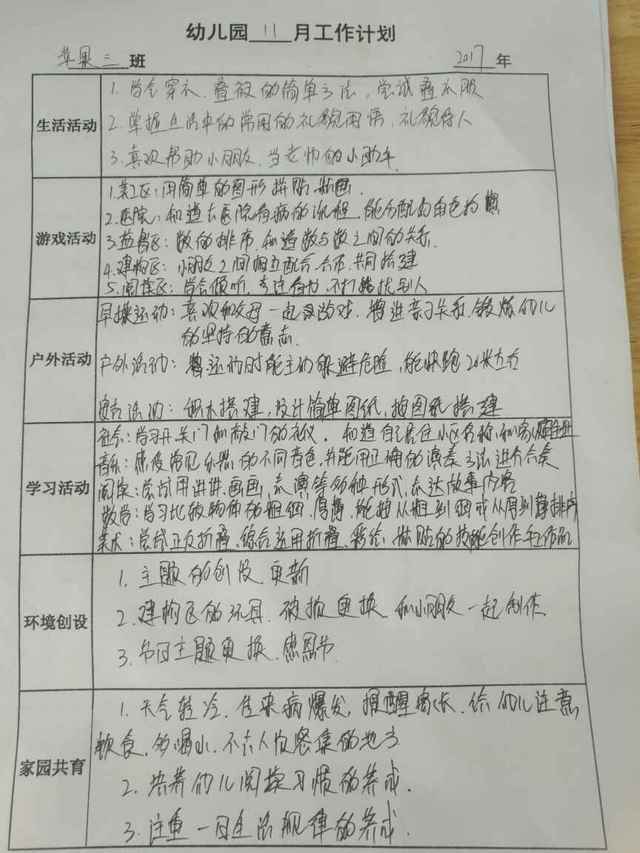 幼儿园11月工作计划
苹果三班 2017年
生活活动
1.学会穿衣、叠被的简单方法，尝试叠衣服
2.掌握生活中的常用的礼貌用语，礼貌待人
3.喜欢帮助小朋友、当老师的小助手
游戏活动
1.美工区：用简单的图形拼贴、折画.
2.医院：知道去医院看病的流程，能分配的角色
3.益智区：数的排序，知道数与数之间的关系.
4.建构区：小朋友之间相互配合、合作、共同搭建
5.阅读区：学会倾听、不打扰别人
户外活动
早操运动：喜欢和父母一起玩游戏.增进亲子关系，锻炼幼儿
的坚持的意志.
户外活动：运动时能主动躲避危险，能快跑20米左右
活动：积木搭建，设计简单图纸，按图纸搭建
学习活动
社会：学习开关门和敲门的礼仪. 知道自己居住小区名称，和家庭住址
音乐：感受常见乐器的不同音色，并能用正确的演奏方法进行合奏
阅读：尝试用讲讲、画画、表演等各种形式，表达故事内容
数学：学习比较物体的粗细、厚薄，能按从粗到细或从厚到薄排序
美术：尝试正反折叠，综合运用折叠、彩绘、拼贴的技能创作手工作品
环境创设
1.主题的创设更新
2.建构区的玩具、破损更换 和小朋友一起制作.
3.节日主题更换、感恩节.
家园共育
1.天气转冷、传染病爆发，提醒家长、给幼儿注意
饮食、多喝水、不去人口密集的地方
2.培养幼儿阅读习惯的养成.
3.注重一日生活规律的养成.